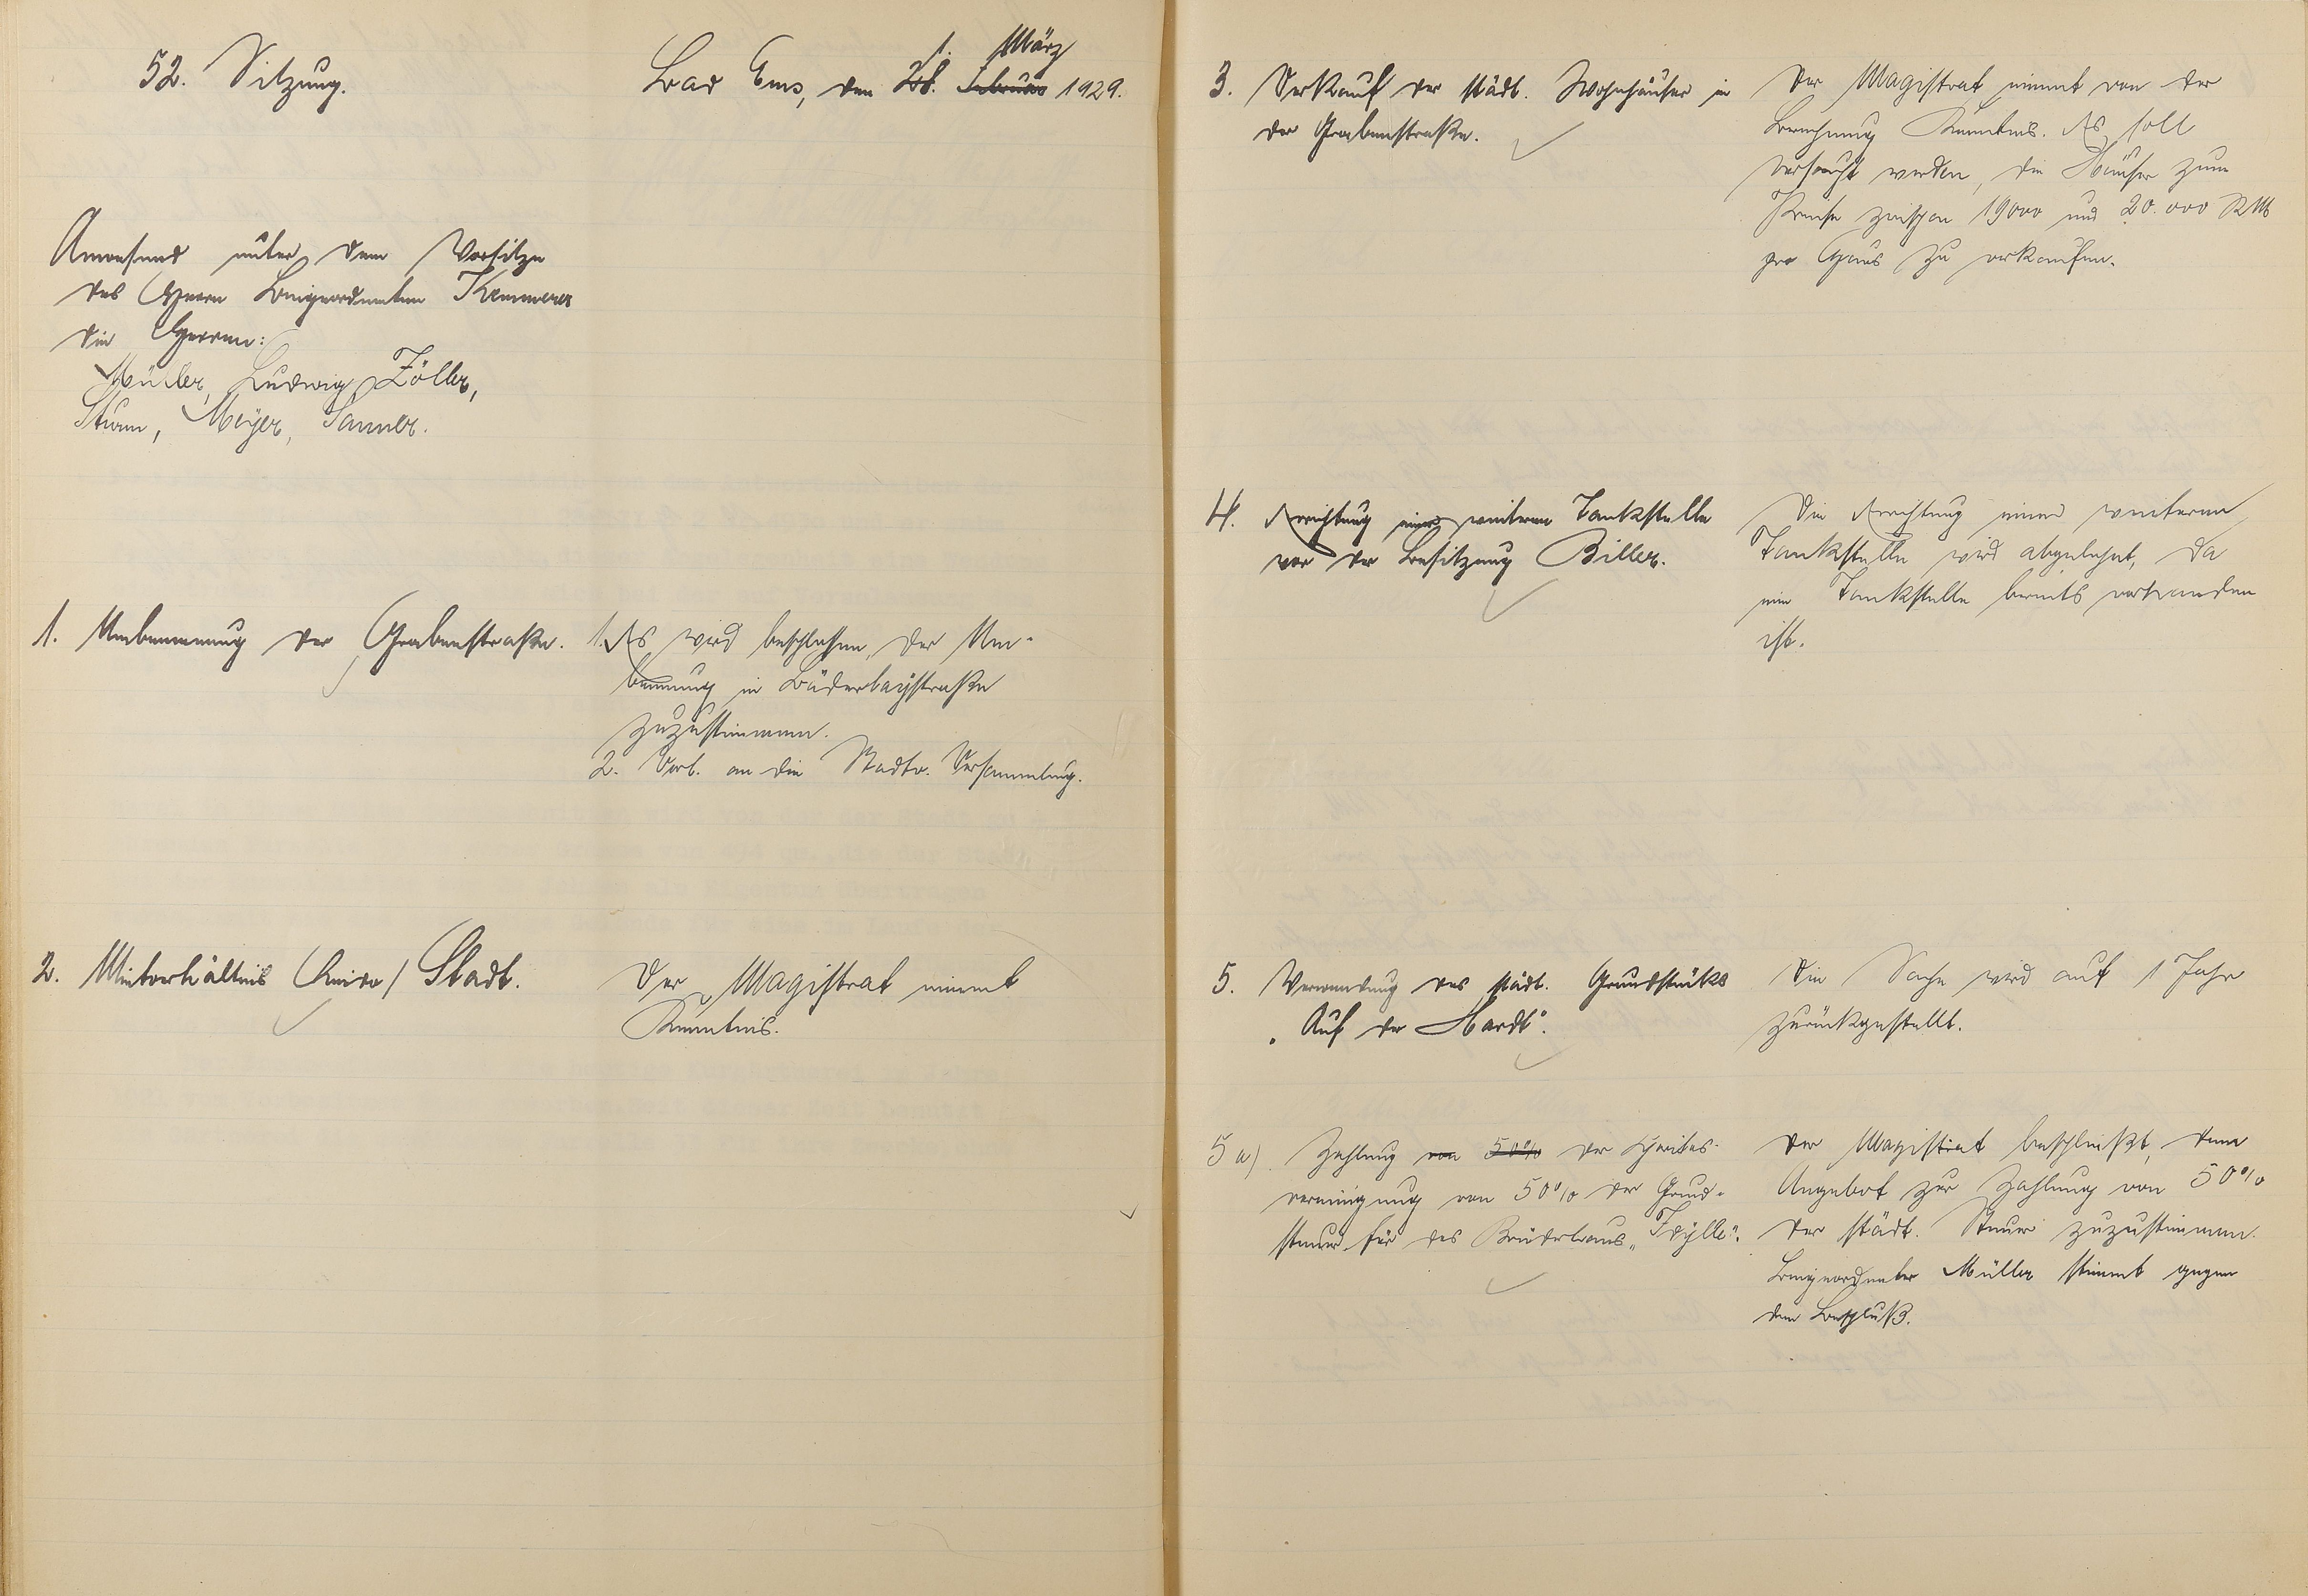 52. Sitzung.
Bad Ems, den 28. Februar 1929.
1. März
Anwesend unter dem Vorsitze
des Herrn Beigeordneten Kemmerer
die Herren:
Müller, Ludwig Zöller,
Sturm, Meyer, Sanner.
1. Umbenennung der Grabenstraße.
1. Es wird beschlossen, der Um-
benennung in Bäderleystraße
zuzustimmen.
2. Vorl. an die Stadtv. Versammlung.
2. Mietverhältnis /Stadt.
Der Magistrat nimmt
Kenntnis.
3. Verkauf der städt. Wohnhäuser in
der Grabenstraße.
Der Magistrat nimmt von der
Berechnung Kenntnis. Es soll
versucht werden, die Häuser zum
Preise zwischen 19000 und 20.000 RM
pro Haus zu verkaufen.
4. Errichtung einer weiteren Tankstelle
vor der Besitzung Biller.
Die Errichtung einer weiteren
Tankstelle wird abgelehnt, da
eine Tankstelle bereits vorhanden
ist.
5. Verwendung des städt. Grundstücks
"Auf der Hardt".
Die Sache wird auf 1 Jahr
zurückgestellt.
5a). Zahlung von 50% der Charitas-
vereinigung von 50% der Grund-
steuer für das Brüderhaus „Idylle".
Der Magistrat beschließt, dem
Angebot zur Zahlung von 50%
der städt. Steuer zuzustimmen.
Beigeordneter Müller stimmt gegen
den Beschluß.